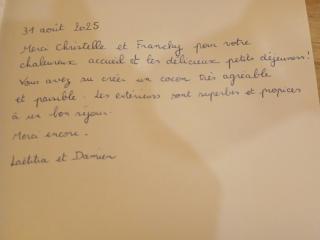 31 août 2025
Merci Christelle et Franchy pour votre
chaleureux accueil et les délicieux petits déjeuners!
Vous avez su créer un cocon très agréable
et paisible. Les extérieurs sont superbes et propices
à un bon séjour.
Merci encore.
Laëtitia et Damien